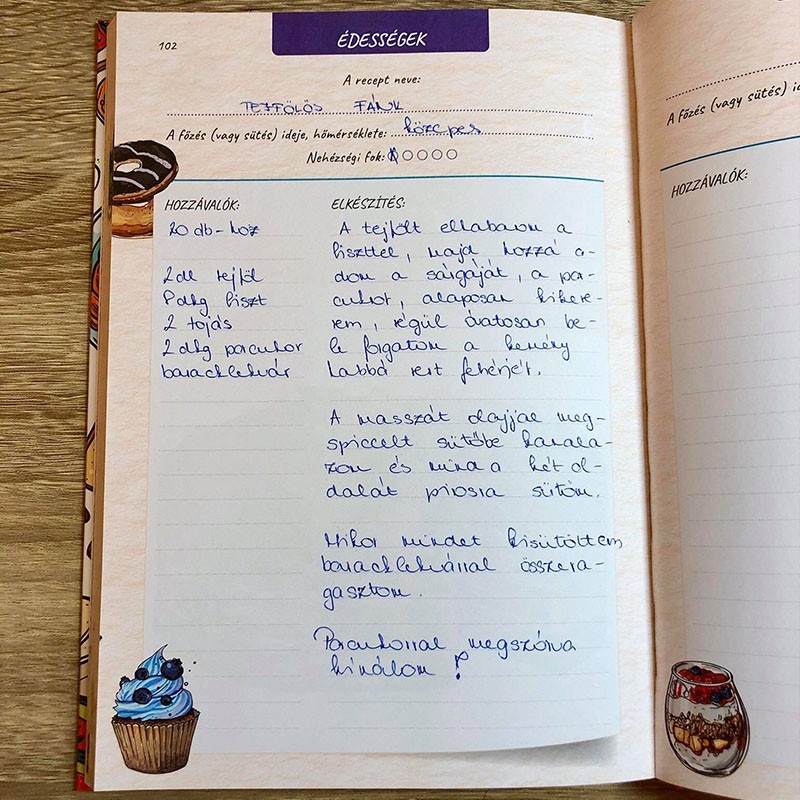 102
ÉDESSÉGEK
A recept neve:
TEJFÖLÖS FÁNK
A főzés (vagy sütés) ideje, hőmérséklete: közepes
Nehézségi fok:
HOZZÁVALÓK:
20 db-hoz
2dl tejföl
dkg liszt
2 tojás
2 dkg porcukor
baracklekvár
ELKÉSZÍTÉS:
A tejfölt elkabarom a
liszttel, majd hozzá a-
dom a sárgáját, a por-
cukrot, alaposan kikeve-
rem, végül óvatosan be-
le forgatom a kemény
habbá vert fehérjét.
A masszát olajjal meg-
spiccelt sütőbe kanala-
zom és mind a két ol-
dalát pirosra sütöm.
Mikor mindet kisütöttem
baracklekvárral összera-
gasztom.
Porcukorral megszórva
kínálom!
A főzés (vagy sütés) ide
HOZZÁVALÓK: